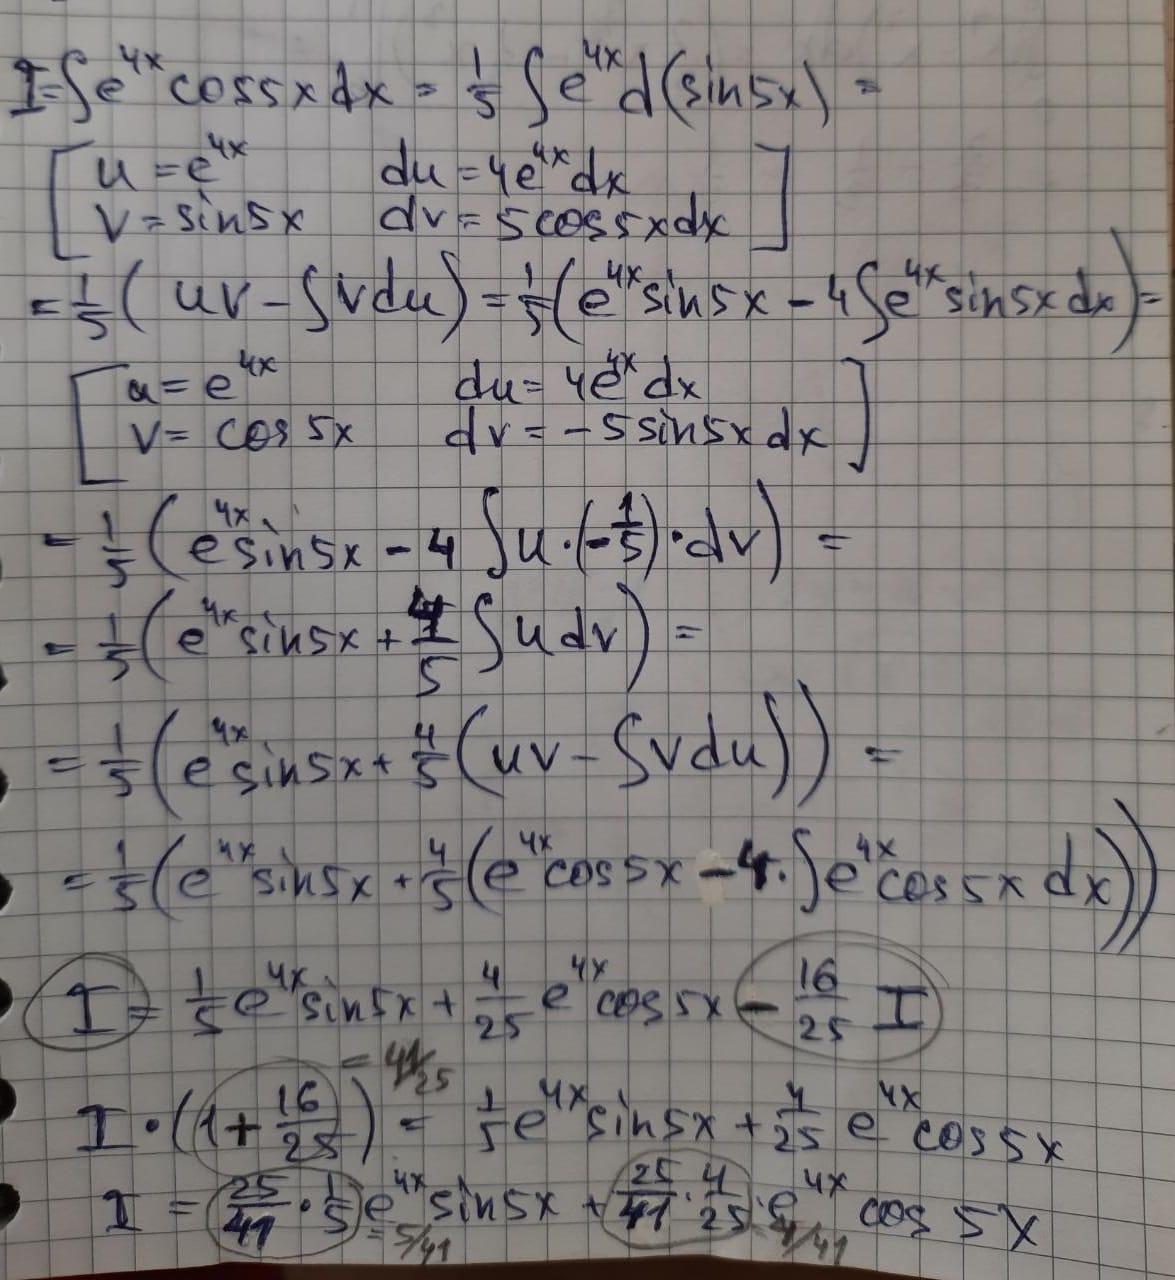 I = ∫ e^{4x} cos 5x dx = 1/5 ∫ e^{4x} d(sin 5x) =
[ u = e^{4x} du = 4e^{4x} dx
v = sin 5x dv = 5 cos 5x dx ]
= 1/5 ( uv - ∫ v du ) = 1/5 ( e^{4x} sin 5x - 4 ∫ e^{4x} sin 5x dx ) =
[ u = e^{4x} du = 4e^{4x} dx
v = cos 5x dv = -5 sin 5x dx ]
= 1/5 ( e^{4x} sin 5x - 4 ∫ u · (-1/5) · dv ) =
= 1/5 ( e^{4x} sin 5x + 4/5 ∫ u dv ) =
= 1/5 ( e^{4x} sin 5x + 4/5 ( uv - ∫ v du ) ) =
= 1/5 ( e^{4x} sin 5x + 4/5 ( e^{4x} cos 5x - 4 · ∫ e^{4x} cos 5x dx ) )
I = 1/5 e^{4x} sin 5x + 4/25 e^{4x} cos 5x - 16/25 I
= 41/25
I · ( 1 + 16/25 ) = 1/5 e^{4x} sin 5x + 4/25 e^{4x} cos 5x
I = 25/41 · 1/5 e^{4x} sin 5x + 25/41 · 4/25 · e^{4x} cos 5x
= 5/41 = 4/41